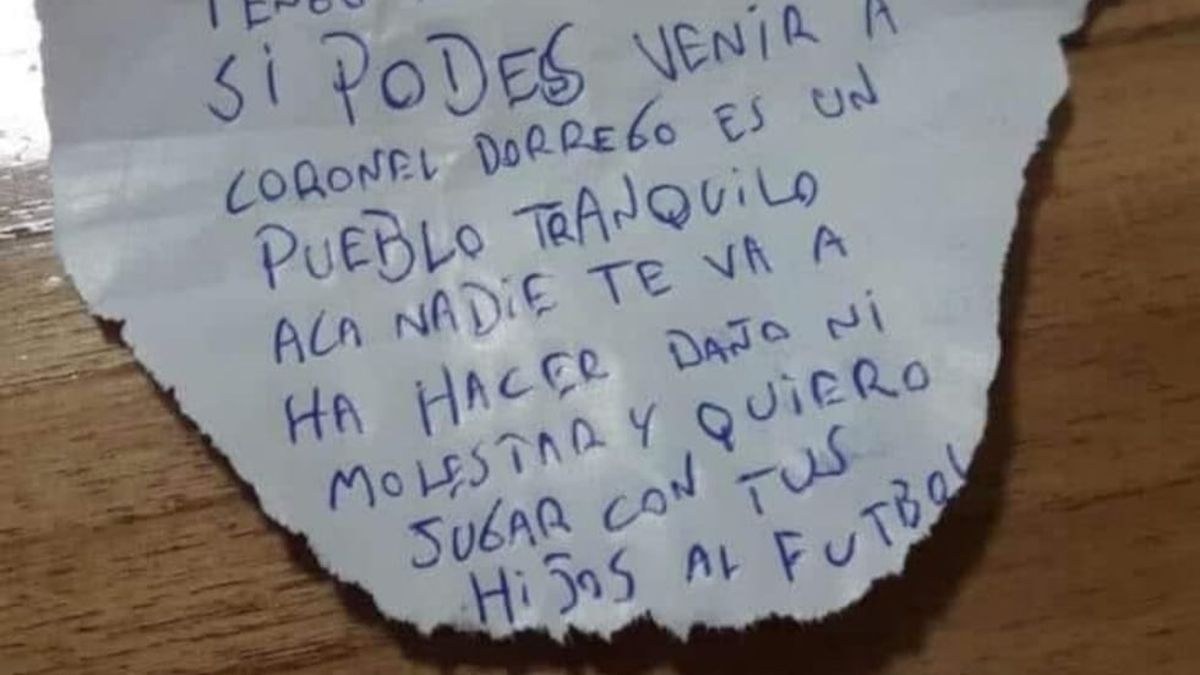 SI PODES VENIR A
CORONEL DORREGO ES UN
PUEBLO TRANQUILO
ACA NADIE TE VA A
HA HACER DAÑO NI
MOLESTAR Y QUIERO
JUGAR CON TUS
HIJOS AL FUTBOL